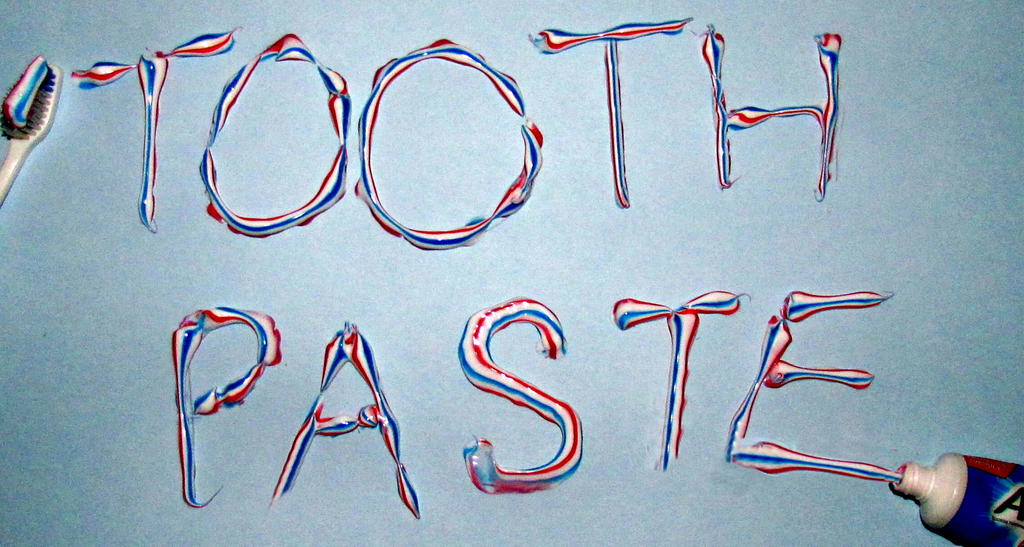 TOOTH
PASTE
A